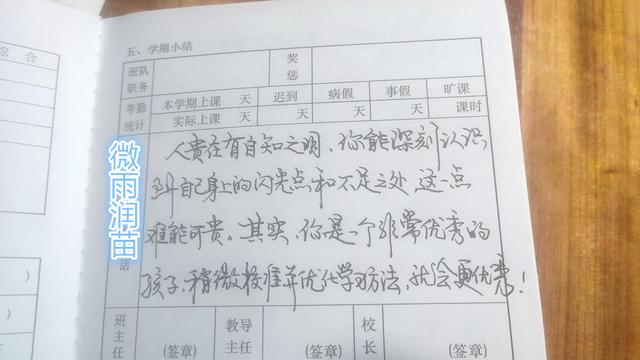 综 合
五、学期小结
班队职务
奖惩
考勤统计
本学期上课 天 迟到 病假 事假 旷课
实际上课 天 天 天 天 课时
人贵在有自知之明，你能深刻认识
到自己身上的闪光点和不足之处，这一点
难能可贵。其实，你是一个非常优秀的
孩子，稍微校准并优化学习方法，就会更优秀！
话
微雨润苗
班主任
(签章)
教导主任
(签章)
校长
(签章)
)
)